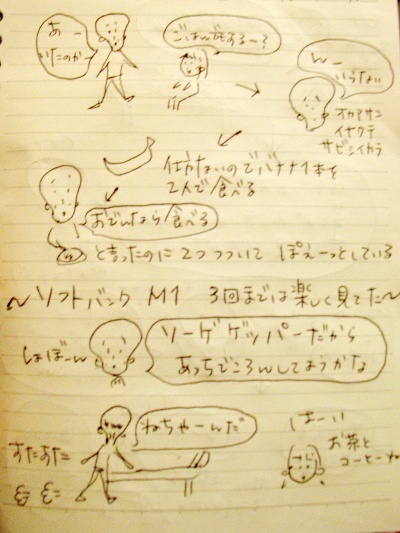 あー
いたのかー
ごはんどするー?
んー
いらない
オカアサン
イナクテ
サビシイカラ
仕方ないのでバナナ1本を
2人で食べる
おでんなら食べる
と言ったのに 2つつついて ぽえーっとしている
〜ソフトバンク M1 3回までは楽しく見てた〜
しょぼーん
ソーゲゲッパーだから
あっちでころんしてようかな
ねちゃーんだ
すたすた
はーい
お茶と
コーヒーね